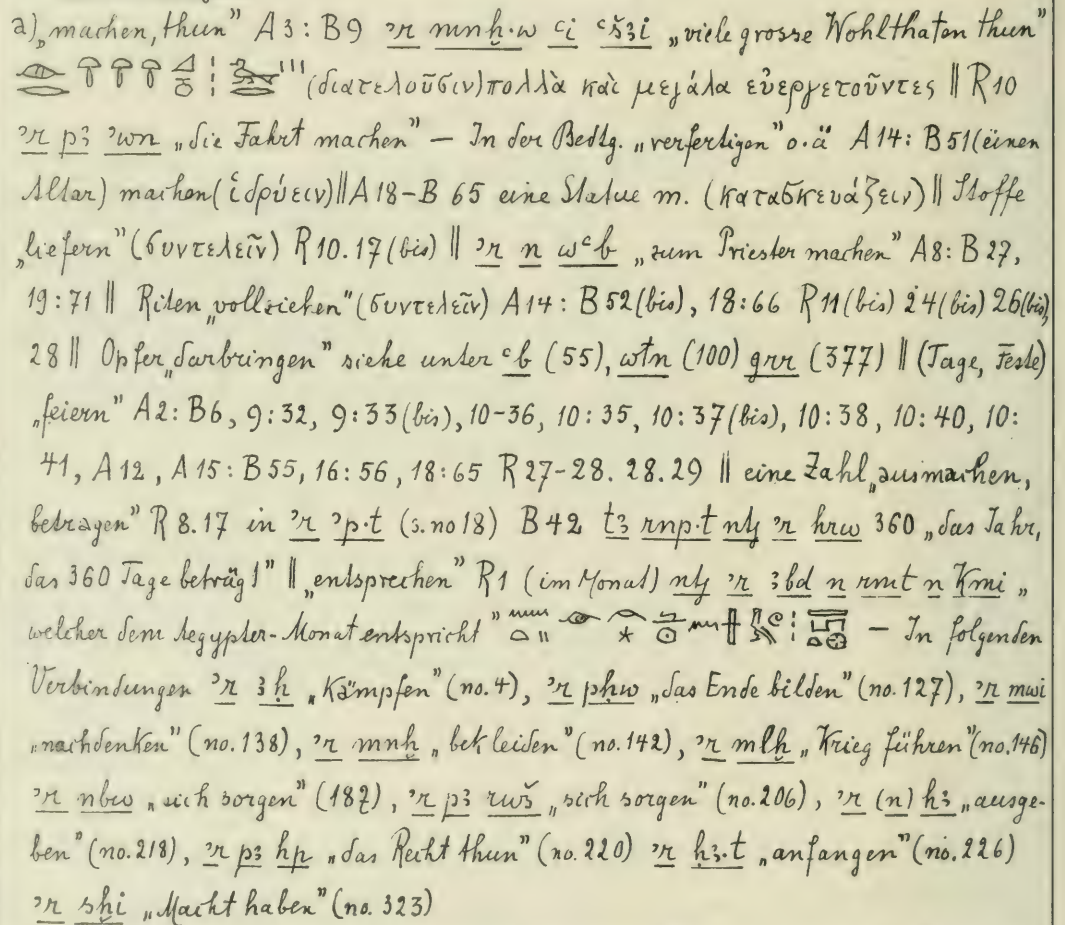 a) „machen, thun" A3: B9 ꜥr mnḫ·w ꜥi ꜥšꜣi „viele grosse Wohlthaten thun"
(διατελοῦσιν) πολλὰ καὶ μεγάλα εὐεργετοῦντες || R10
ʾr pꜣ ʾwn „die Fahrt machen" — In der Bedtg. „verfertigen" o.ä A14: B51 (einen
Altar) machen (ἱδρύειν) || A18-B 65 eine Statue m. (κατασκευάζειν) || Stoffe
„liefern" (συντελεῖν) R10.17 (bis) || ʾr n wꜥb „zum Priester machen" A8: B27,
19:71 || Riten „vollziehen" (συντελεῖν) A14: B52 (bis), 18:66 R11 (bis) 24 (bis) 26 (bis),
28 || Opfer „darbringen" siehe unter ꜥb (55), wtn (100) grr (377) || (Tage, Feste)
„feiern" A2: B6, 9:32, 9:33 (bis), 10-36, 10:35, 10:37 (bis), 10:38, 10:40, 10:
41, A12, A15: B55, 16:56, 18:65 R27-28. 28. 29 || eine Zahl „ausmachen,
betragen" R8.17 in ʾr ʾp·t (s. no 18) B42 tꜣ rnp·t ntj ʾr hrw 360 „das Jahr,
das 360 Tage beträgt" || „entsprechen" R1 (im Monat) ntj ʾr ꜣbd n rmt n Kmi „
welcher dem Aegypter-Monat entspricht" — In folgenden
Verbindungen ʾr ꜣḫ „Kämpfen" (no. 4), ʾr pḥw „das Ende bilden" (no. 127), ʾr mwi
„nachdenken" (no. 138), ʾr mnḫ „bekleiden" (no. 142), ʾr mlḫ „Krieg führen" (no. 146)
ʾr nbw „sich sorgen" (187), ʾr pꜣ rwš „sich sorgen" (no. 206), ʾr (n) hꜣ „ausge-
ben" (no. 218), ʾr pꜣ hp „das Recht thun" (no. 220) ʾr ḥꜣ·t „anfangen" (no. 226)
ʾr sḫi „Macht haben" (no. 323)